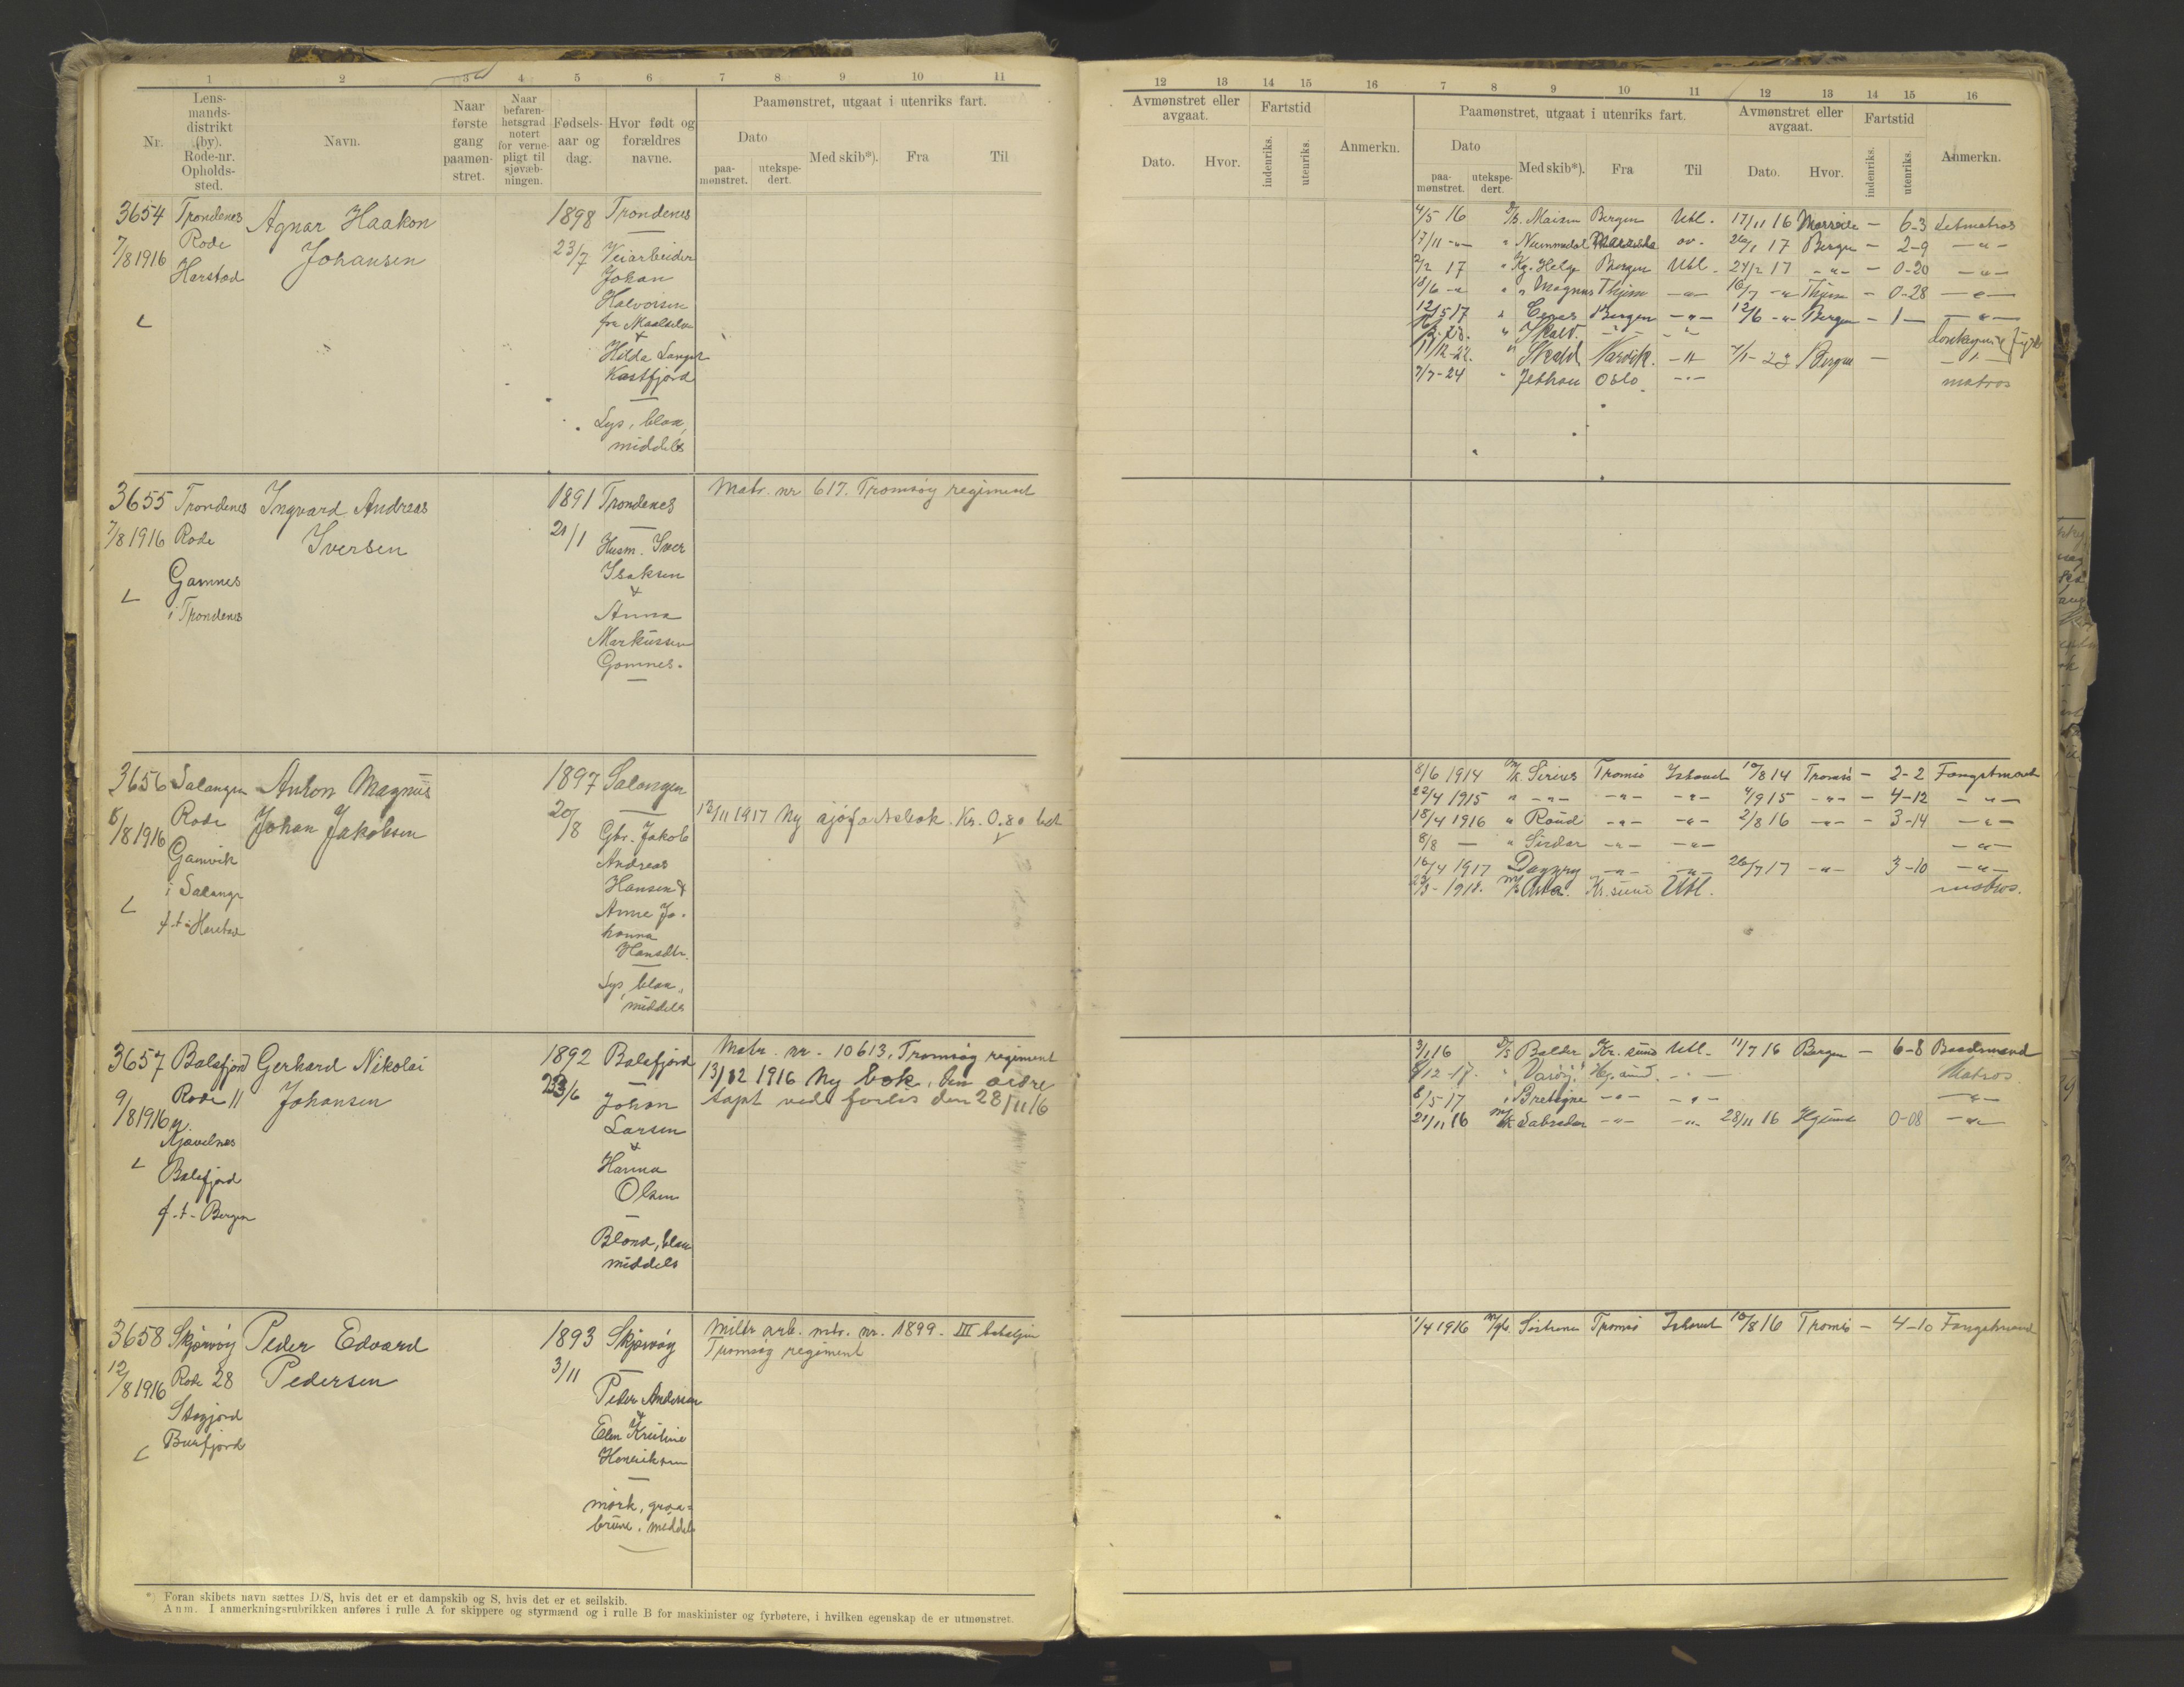 1 2 3 4 5 6 7 8 9 10 11
Nr.
Lens-
mands-
distrikt
(by).
Rode-nr.
Opholds-
sted.
Navn.
Naar
første
gang
paamøn-
stret.
Naar
befaren-
hetsgrad
notert
for verne-
pligt til
sjøvæb-
ningen.
Fødsels-
aar og
dag.
Hvor født og
forældres
navne.
Paamønstret, utgaat i utenriks fart.
Dato
paa-
mønstret.
utekspe-
dert.
Med skib*).
Fra
Til
3654 Trondenes Agnar Haakon 1898 Trondenes
7/8 1916 Rode Johansen 23/7 Veiarbeider
Harstad Johan
Halvorsen
fra Maalselven
&
Hilda
Kastfjord
Lys, blaa,
middels
3655 Trondenes Ingvard Andreas 1891 Trondenes Matr. nr 617. Tromsøy regiment
7/8 1916 Rode Iversen 21/1 Husm. Iver
Gamnes Isaksen
i Trondenes &
Anna
Markussen
Gamnes.
3656 Salangen Anton Magnus 1897 Salangen
8/8 1916 Rode Johan Jakobsen 20/8 13/11 1917 Ny sjøfartsbok. Kr. 0.80 bet
Gamvik Gbr. Jakob
i Salangen Andreas
f.t. Harstad Hansen &
Anne Jo-
hanna
Hansdtr.
Lys, blaa,
middels
3657 Balsfjord Gerhard Nikolai 1892 Balsfjord Matr. nr. 10613, Tromsøy regiment
9/8 1916 Rode 11 Johansen 23/6 Johan 13/12 1916 Ny bok, den ældre
Larsen tapt ved forlis den 28/11 16
Balsfjord &
f.t. Bergen Hanna
Olsen
Blond, blaa
middels
3658 Skjærvøy Peder Edvard 1893 Skjærvøy Miltr arb. mtr. nr. 1899. III bataljon
12/8 1916 Rode 28 Pedersen 3/11 Tromsøy regiment
Burfjord Peder Andersen
&
Elen Kristine
Henriksen
mørk, graa-
brune, middels
*) Foran skibets navn sættes D/S, hvis det er et dampskib og S, hvis det er et seilskib.
Anm. I anmerkningsrubrikken anføres i rulle A for skippere og styrmænd og i rulle B for maskinister og fyrbøtere, i hvilken egenskap de er utmønstret.
12 13 14 15 16 7 8 9 10 11 12 13 14 15 16
Avmønstret eller
avgaat.
Dato.
Hvor.
Fartstid
indenriks.
utenriks.
Anmerkn.
Paamønstret, utgaat i utenriks fart.
Dato
paa-
mønstret.
utekspe-
dert.
Med skib*).
Fra
Til
Avmønstret eller
avgaat.
Dato.
Hvor.
Fartstid
indenriks.
utenriks.
Anmerkn.
4/5 16 D/S. Bergen Utl. 17/11 16 — 6-3 Letmatros
17/11 -"- " ov. 26/1 17 Bergen — 2-9 -"-
2/2 17 " Kg. Helge Bergen Utl. 24/2 17 -"- — 0-20 -"-
18/6 -" " " Magnus Thjem -"- 16/7 -" Thjem — 0-28 -"-
12/5 17 " Ceres Bergen -"- 12/6 -"- Bergen — 1 — -"-
" Skald. -"- -"-
11/12-22. " Skald Narvik. -"- 7/1-23 Bergen — -"-
7/7-24 " Jethou Oslo. -"- matros
8/6 1914 M/K. Sirius Tromsø Ishavet 10/8 14 Tromsø — 2-2 Fangstmand
22/4 1915 " -"- -"- -"- 4/9 15 -"- — 4-12 -"-
18/4 1916 " Roald -"- -"- 2/8 16 -"- — 3-14 -"-
8/8 — " Sirdar -"- -"- -"-
16/4 1917 Dagny -"- -"- 26/7 17 -"- 3-10 -"-
1918. Kr.sund Utl. matros.
3/1 16 D/S Balder Kr. sund Utl. 11/7 16 Bergen — 6-8 Baadsmand
/12-17. " Varøy. Hg.sund. -"- Matros
8/5-17 " Bretagne -"- -"- -"-
21/11 16 M/K Labrador -"- -"- 28/11 16 Hgsund 0-08 -"-
1/4 1916 Søstrene Tromsø Ishavet 10/8 16 Tromsø — 4-10 Fangstmand